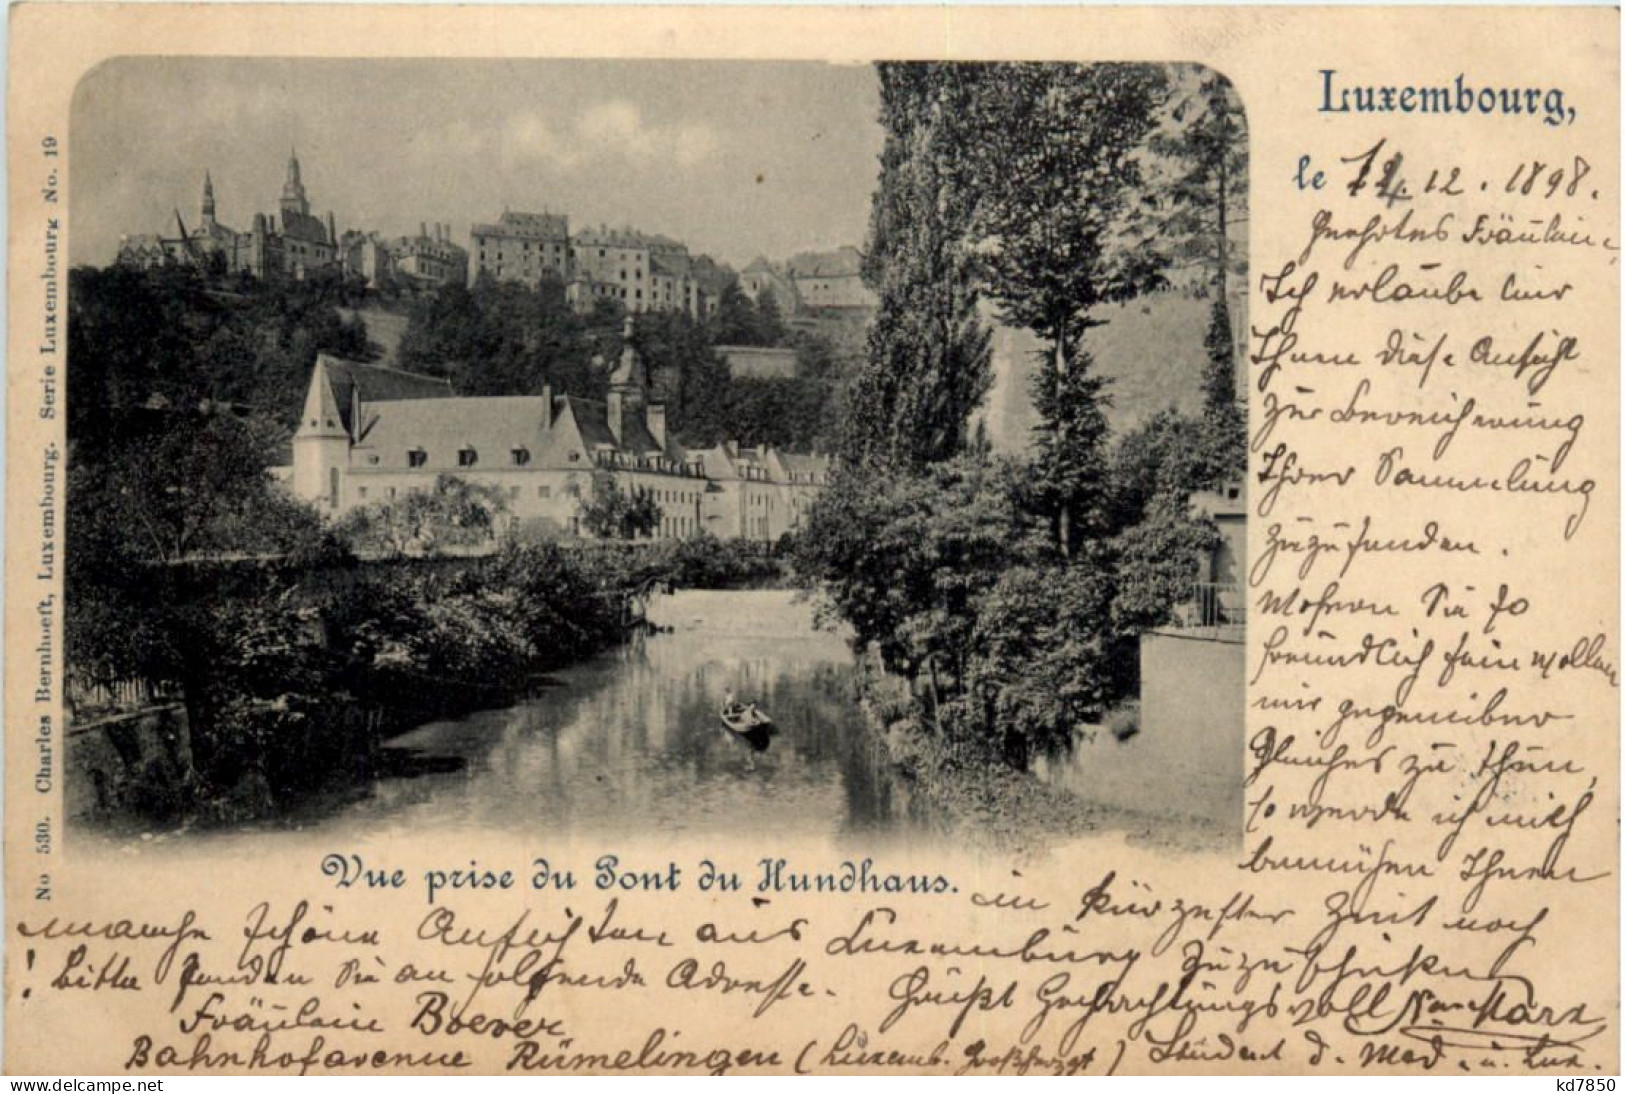 Luxembourg,
le 14. 12. 1898.
Geehrtes Fräulein,
Ich erlaube mir
Ihnen diese Ansicht
zur Bereicherung
Ihrer Sammlung
zuzusenden.
Wofern Sie so
freundlich sein wollen
mir gegenüber
Gleiches zu thun,
so werde ich mich
bemühen Ihnen
in kürzester Zeit noch
manche schöne Ansichten aus Luxemburg zuzuschicken
! Bitte senden Sie an folgende Adresse. Grüßt Hochachtungsvoll
Fräulein Boever
Bahnhofavenue Rümelingen (Luxemb. Großherzgt) Student d. Med. u. Lux.
Vue prise du Pont du Hundhaus.
No 530. Charles Bernhoeft, Luxembourg. Serie Luxembourg No. 19
delcampe.net
kd7850